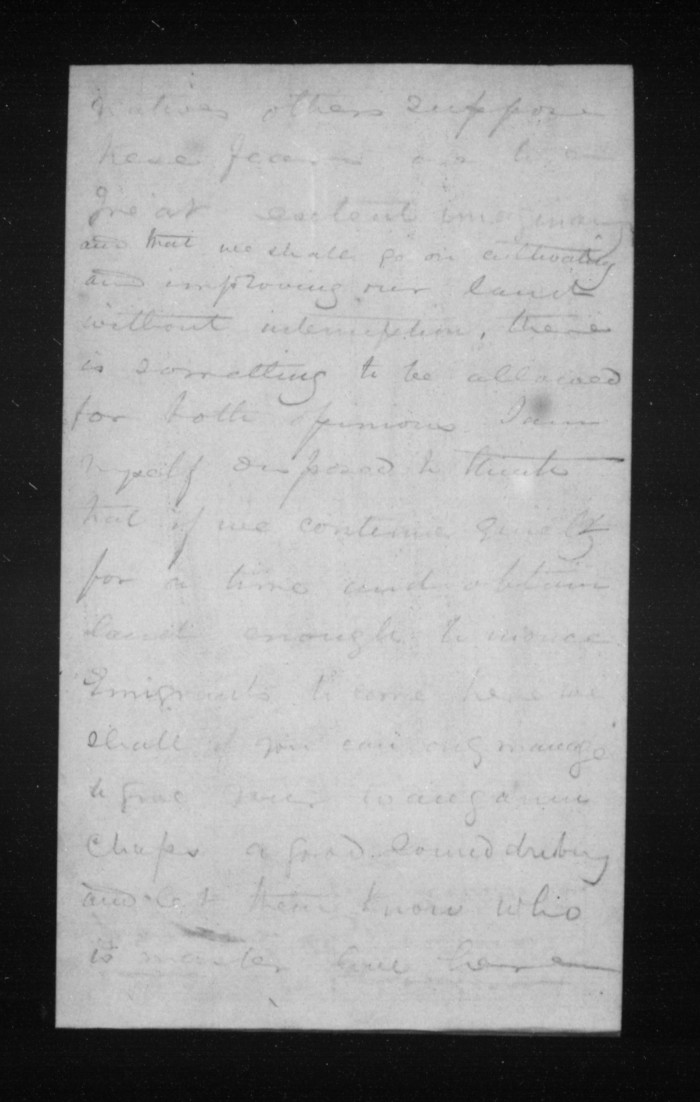 Natives others suppose
these fears are to a
great extent imaginary
and that we shall go on cultivating
and improving our land
without interruption, there
is something to be allowed
for both opinions I am
myself disposed to think
that if we continue quietly
for a time and obtain
land enough to induce
Emigrants to come here we
shall if you can only manage
to give your Wanganui
chaps a good sound drubbing
and let them know who
is master live here